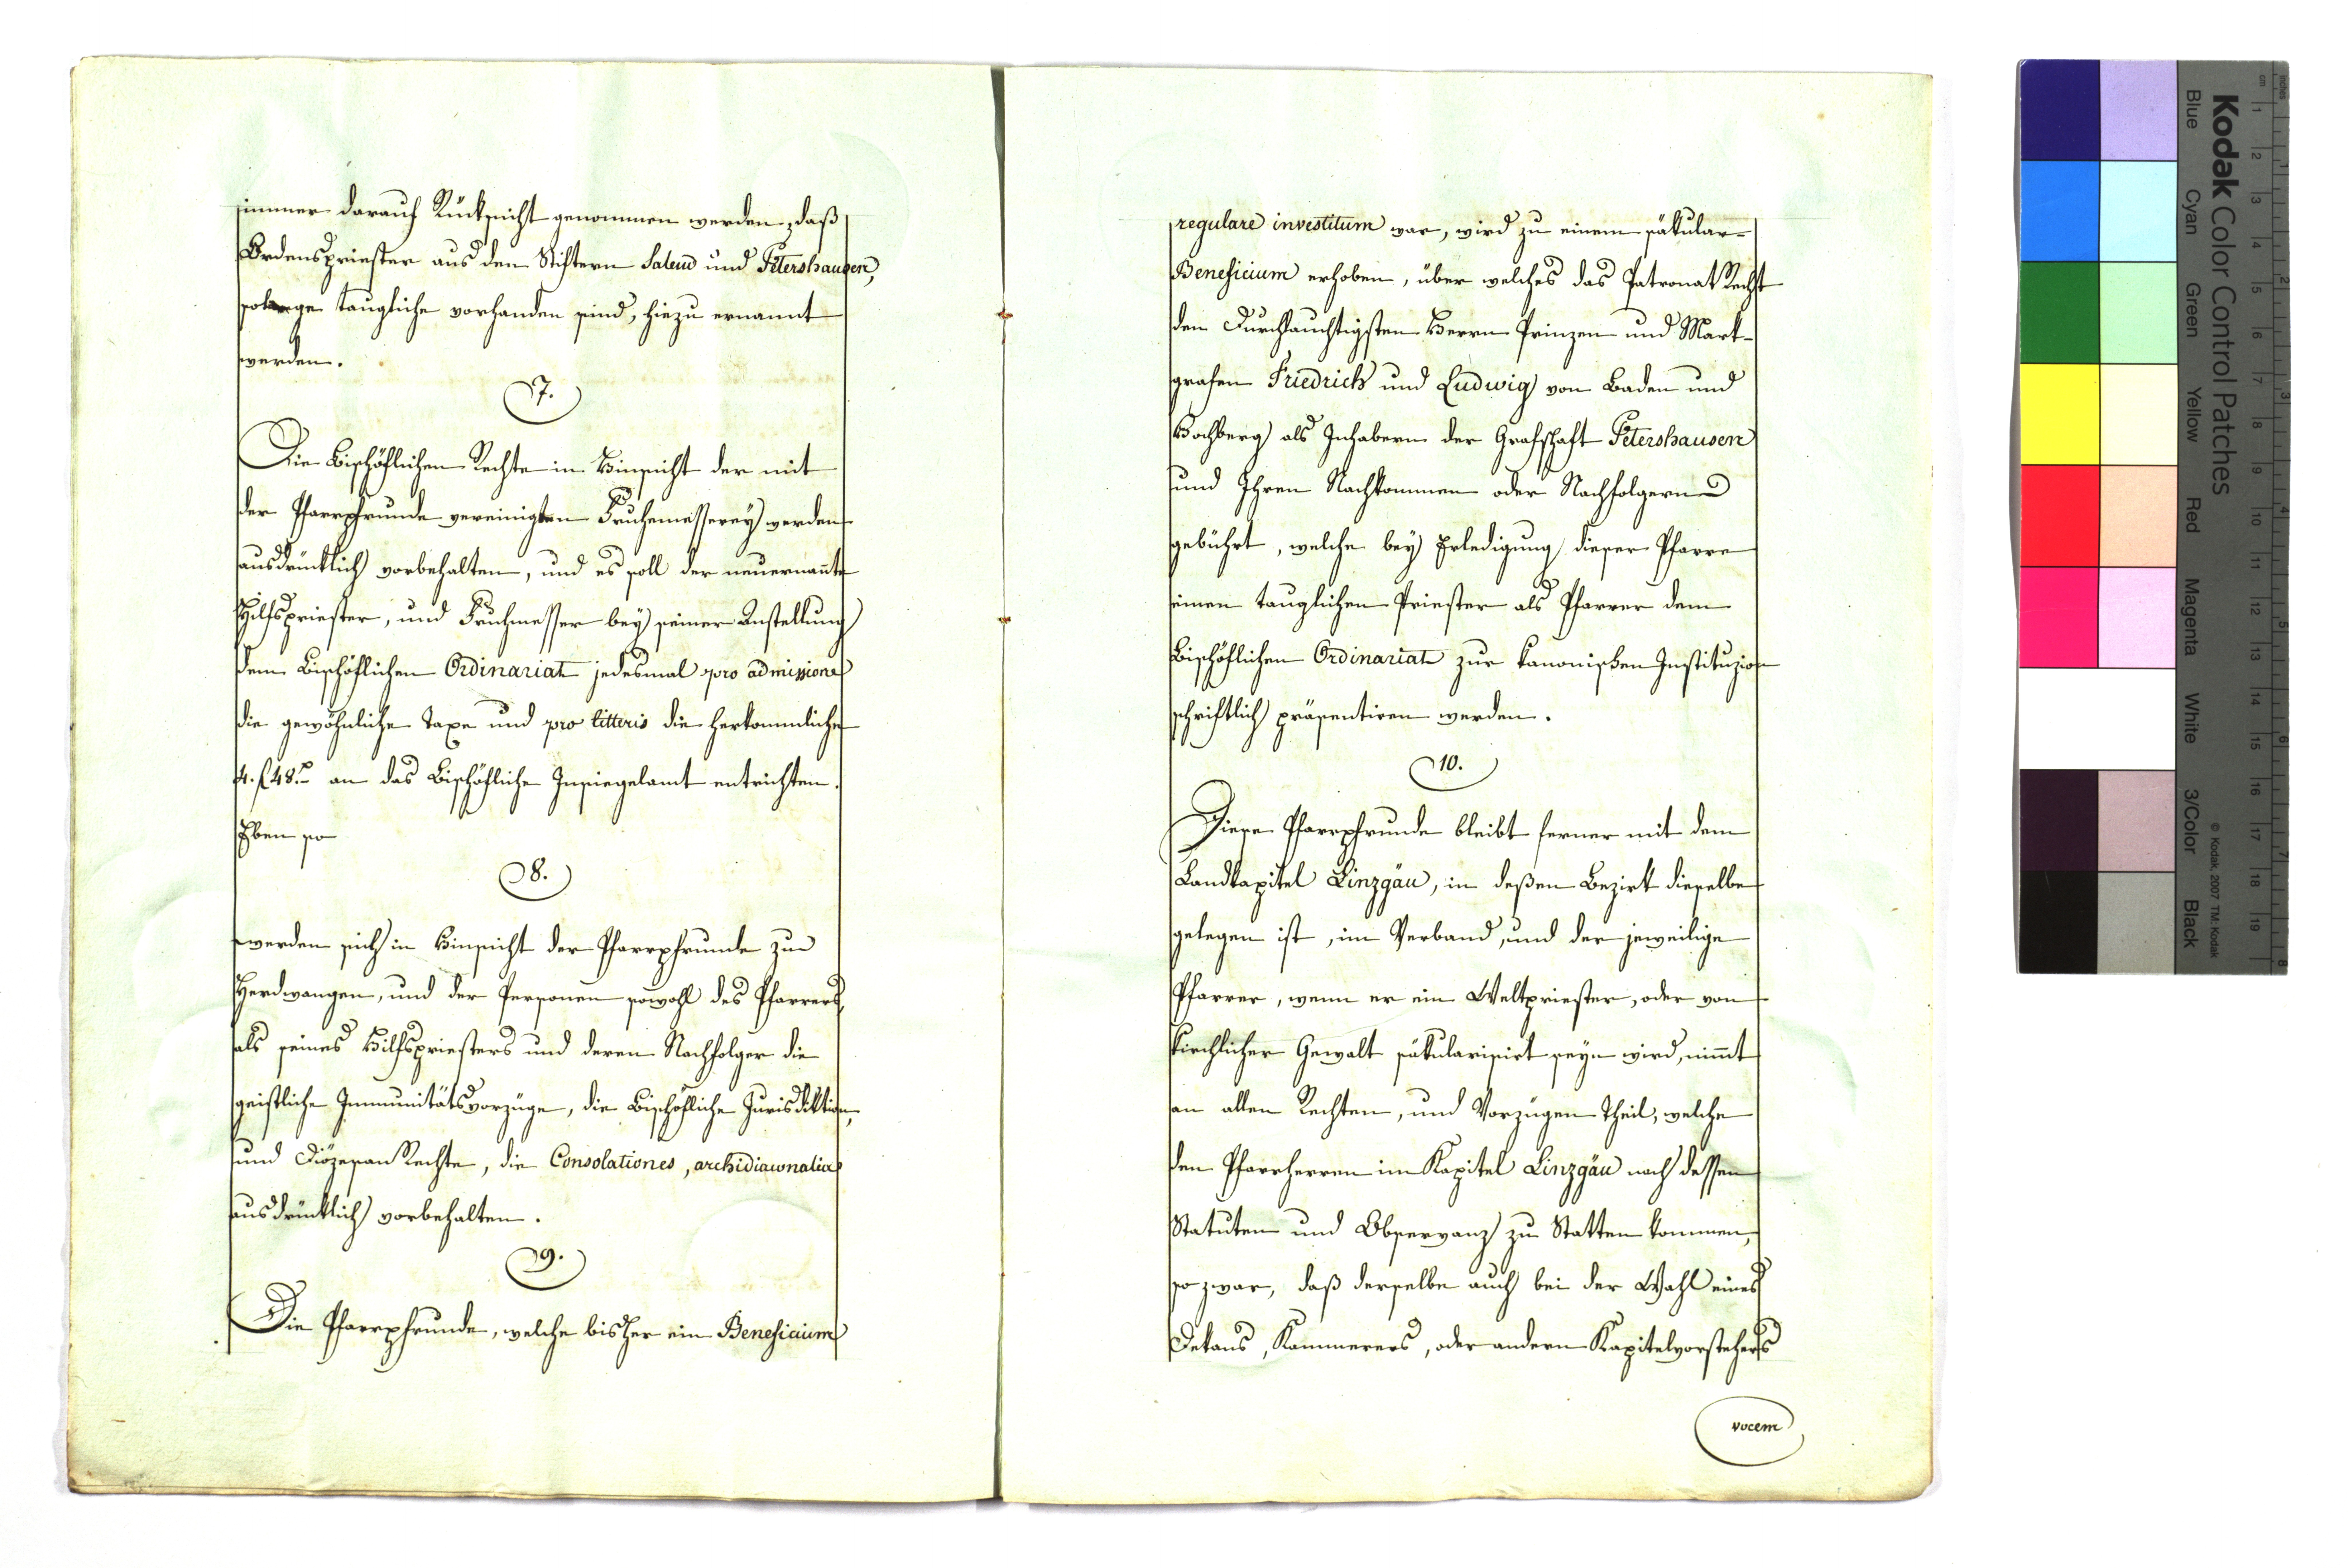 immer darauf Rüksicht genommen werden, daß
Ordenspriester aus den Stiftern Salem und Petershausen,
solange taugliche vorhanden sind, hiezu ernannt
werden.
7.
Die Bischöflichen Rechte in Hinsicht der mit
der Pfarrpfrunde vereinigten Fruhemesserey werden
ausdrüklich vorbehalten, und es soll der neuernannte
Hilfspriester, und Fruhmesser bey seiner Anstellung
dem Bischöflichen Ordinariat jedesmal pro admissione
die gewöhnliche Taxe und pro litteris die herkommliche
4. f 48. an das Bischöfliche Insiegelamt entrichten.
Eben so
8.
werden sich in Hinsicht der Pfarrpfrunde zu
Herdwangen, und der Personen sowohl des Pfarrers,
als seines Hilfspriesters und deren Nachfolger die
geistliche Immunitätsvorzüge, die Bischöfliche Jurisdiktion,
und Diözesan Rechte, die Consolationes, archidiaconalia
ausdrüklich vorbehalten.
9.
Die Pfarrpfrunde, welche bisher ein Beneficium
regulare investitum war, wird zu einem säkular-
Beneficium erhoben, über welches das Patronat Recht
den Durchlauchtigsten Herrn Prinzen und Mark-
grafen Friedrich und Ludwig von Baden und
Hochberg als Inhabern der Grafschaft Petershausen
und Ihren Nachkommen oder Nachfolgern
gebührt, welche bey Erledigung dieser Pfarre
einen tauglichen Priester als Pfarrer dem
Bischöflichen Ordinariat zur kanonischen Instituzion
schriftlich präsentiren werden.
10.
Diese Pfarrpfrunde bleibt ferner mit dem
Landkapitel Linzgäu, in deßen Bezirk dieselbe
gelegen ist, im Verband, und der jeweilige
Pfarrer, wenn er ein Weltpriester, oder von
kirchlicher Gewalt säkularisirt seyn wird, nimmt
an allen Rechten, und Vorzügen Theil, welche
den Pfarrherren im Kapitel Linzgäu nach dessen
Statuten und Observanz zu Statten kommen,
so zwar, daß derselbe auch bei der Wahl eines
Dekans, Kammerers, oder andern Kapitelvorstehers
vocem
Kodak Color Control Patches
Blue Cyan Green Yellow Red Magenta White 3/Color Black
© Kodak, 2007 TM: Kodak
cm 1 2 3 4 5 6 7 8 9 10 11 12 13 14 15 16 17 18 19
inches 1 2 3 4 5 6 7 8